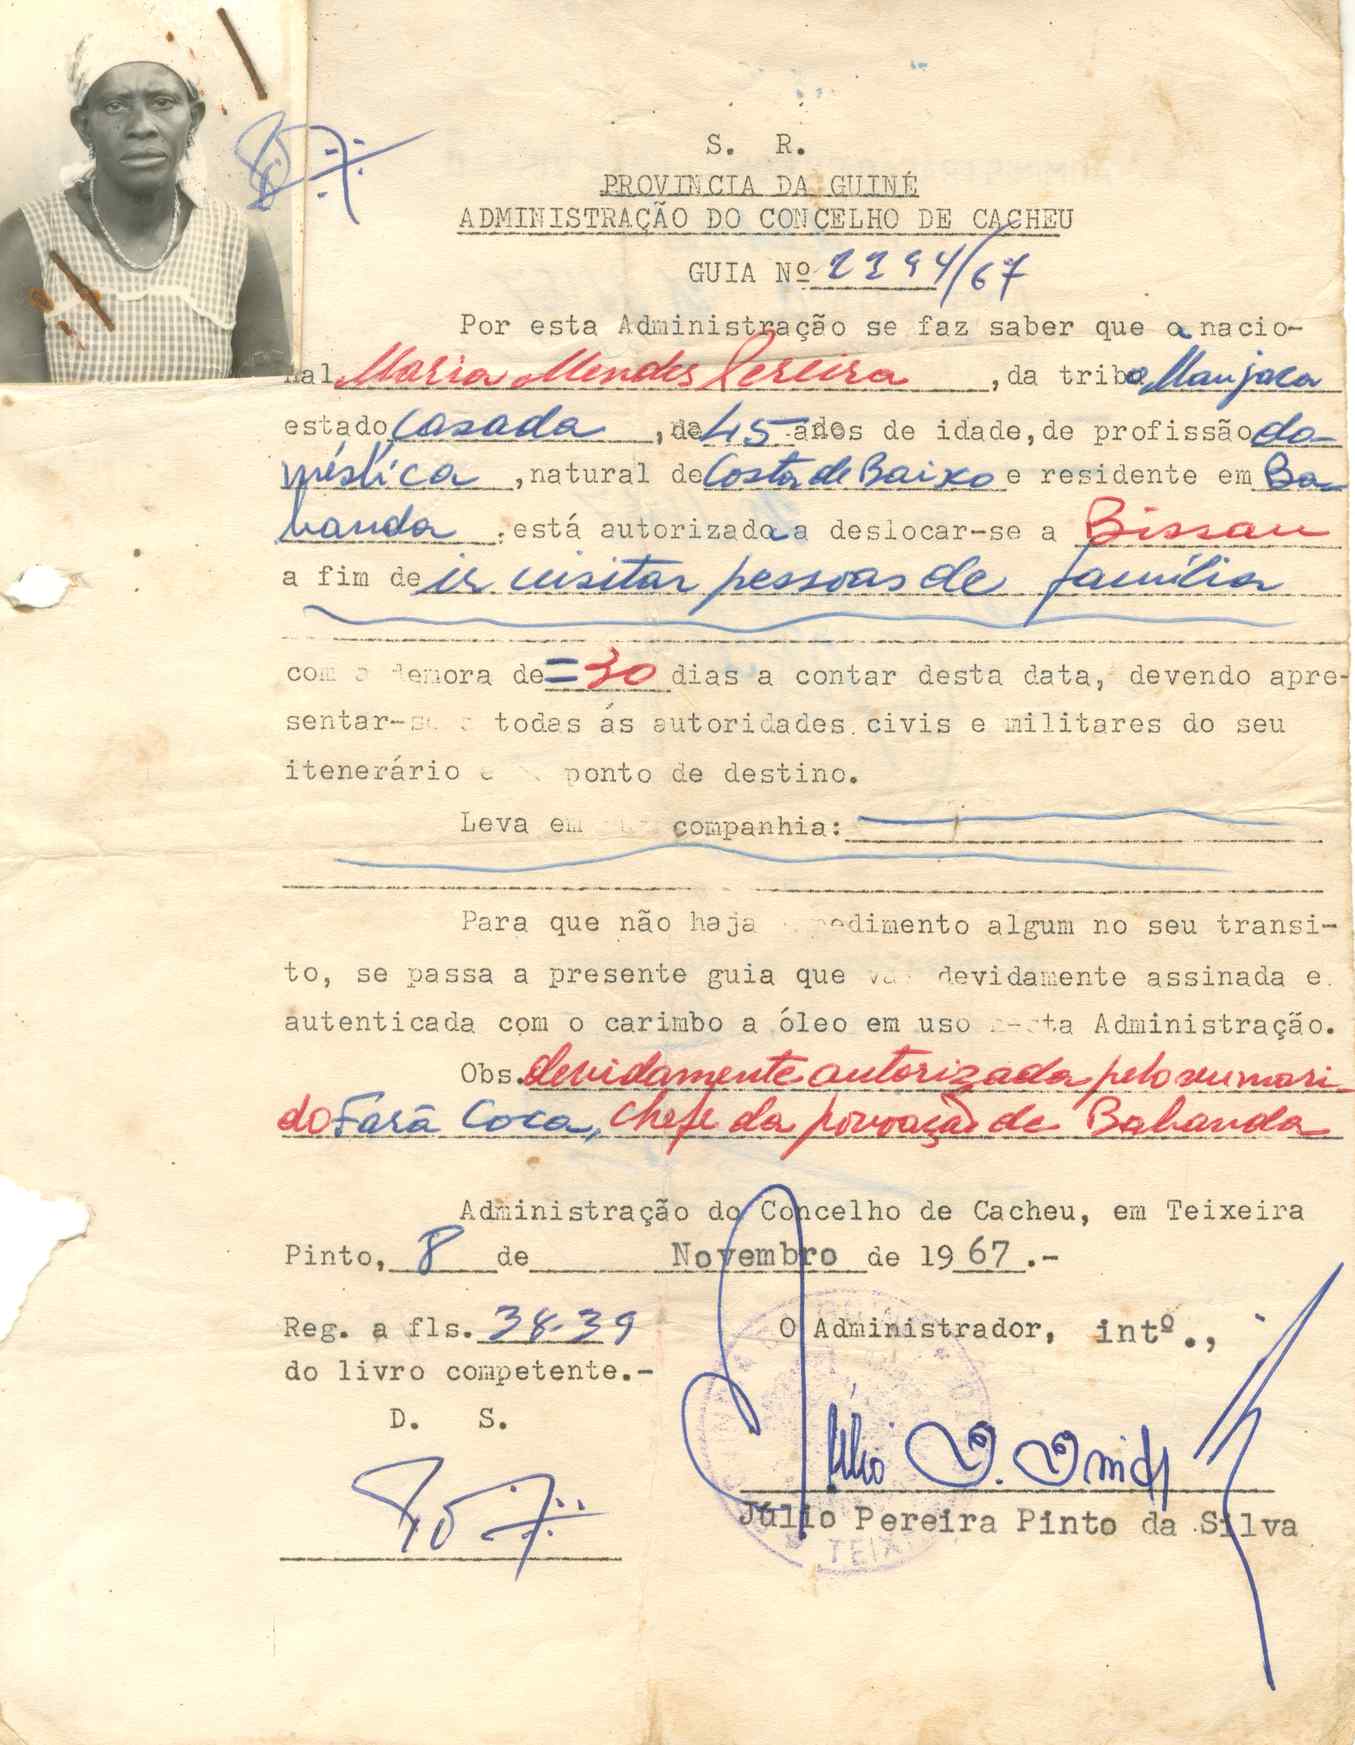 S. R.
PROVINCIA DA GUINÉ
ADMINISTRAÇÃO DO CONCELHO DE CACHEU
GUIA Nº 2294/67
Por esta Administração se faz saber que a nacio-
nal Maria Mendes Pereira, da tribo Manjaca
estado casada, de 45 anos de idade, de profissão do-
méstica, natural de Costa de Baixo e residente em Ba-
banda. está autorizada a deslocar-se a Bissau
a fim de ir visitar pessoas de família
com a demora de =30 dias a contar desta data, devendo apre-
sentar-se a todas ás autoridades civis e militares do seu
itenerário e ponto de destino.
Leva em sua companhia:
Para que não haja impedimento algum no seu transi-
to, se passa a presente guia que vai devidamente assinada e
autenticada com o carimbo a óleo em uso nesta Administração.
Obs. devidamente autorizada pelo seu mari-
do Fará Coca, chefe da povoação de Babanda
Administração do Concelho de Cacheu, em Teixeira
Pinto, 8 de Novembro de 1967.-
Reg. a fls. 38-39
do livro competente.-
D. S.
O Administrador, intº.,
Júlio Pereira Pinto da Silva